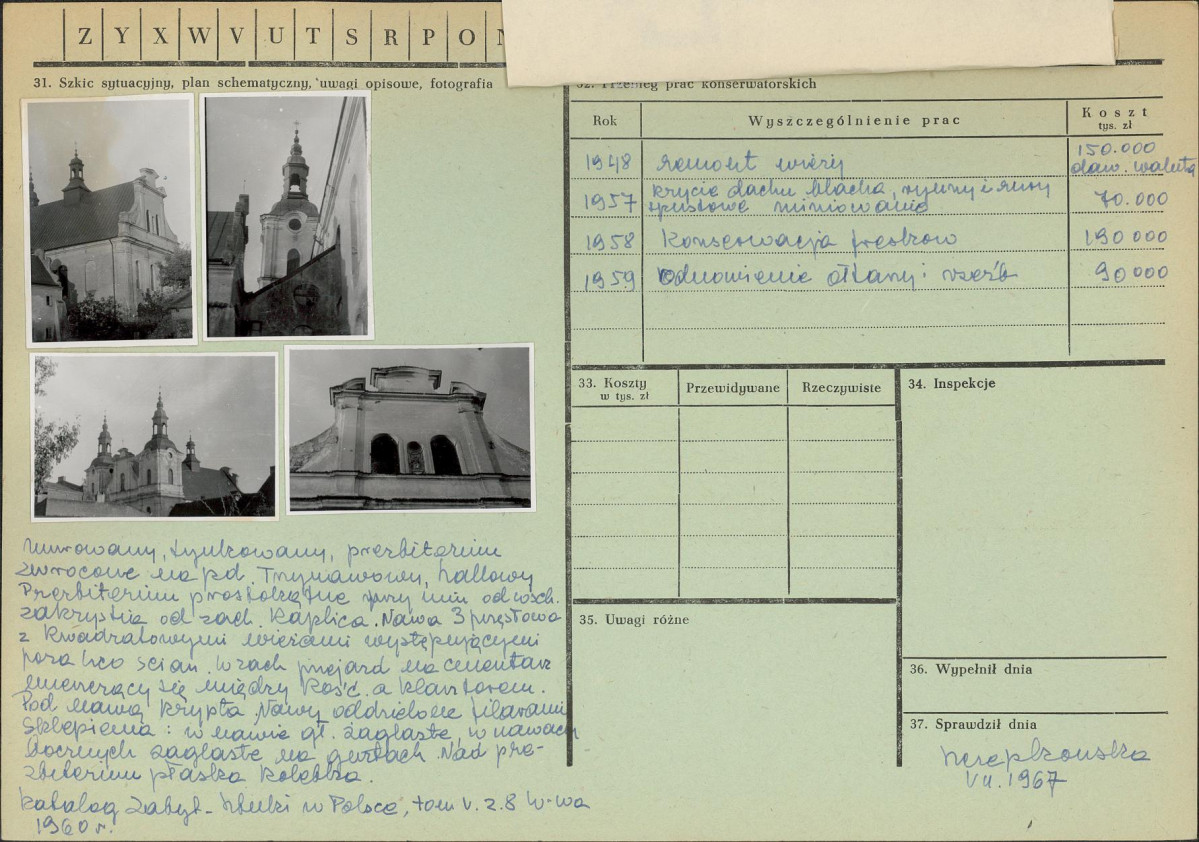 Z Y X W V U T S R P O
31. Szkic sytuacyjny, plan schematyczny, uwagi opisowe, fotografia
murowany, tynkowany, prezbiterium
zwrócone na pd. Trzynawowy, hallowy
Prezbiterium prostokątne przy nim od wsch.
zakrystia od zach. kaplica. Nawa 3 przęsłowa
z kwadratowymi wieżami występującymi
poza lico ścian. W zach. przejazd na cmentarz
mieszczący się między kość. a klasztorem.
Pod nawą krypta. Nawy oddzielone filarami
Sklepienia: w nawie gł. żaglaste, w nawach
bocznych żaglaste na gurtach. Nad pre-
zbiterium płaska kolebka.
Katalog Zabyt. Sztuki w Polsce, tom V. z. 8 W-wa
1960 r.
32. Przebieg prac konserwatorskich
Rok Wyszczególnienie prac Koszt
tys. zł
1948 remont wieży 150.000
daw. waluta
1957 krycie dachu blachą, rynny i rury
spustowe miniowanie 70.000
1958 Konserwacja fresków 190 000
1959 Odnowienie ołtarzy i rzeźb 90 000
33. Koszty
w tys. zł
Przewidywane Rzeczywiste
34. Inspekcje
35. Uwagi różne
36. Wypełnił dnia
37. Sprawdził dnia
VII. 1967